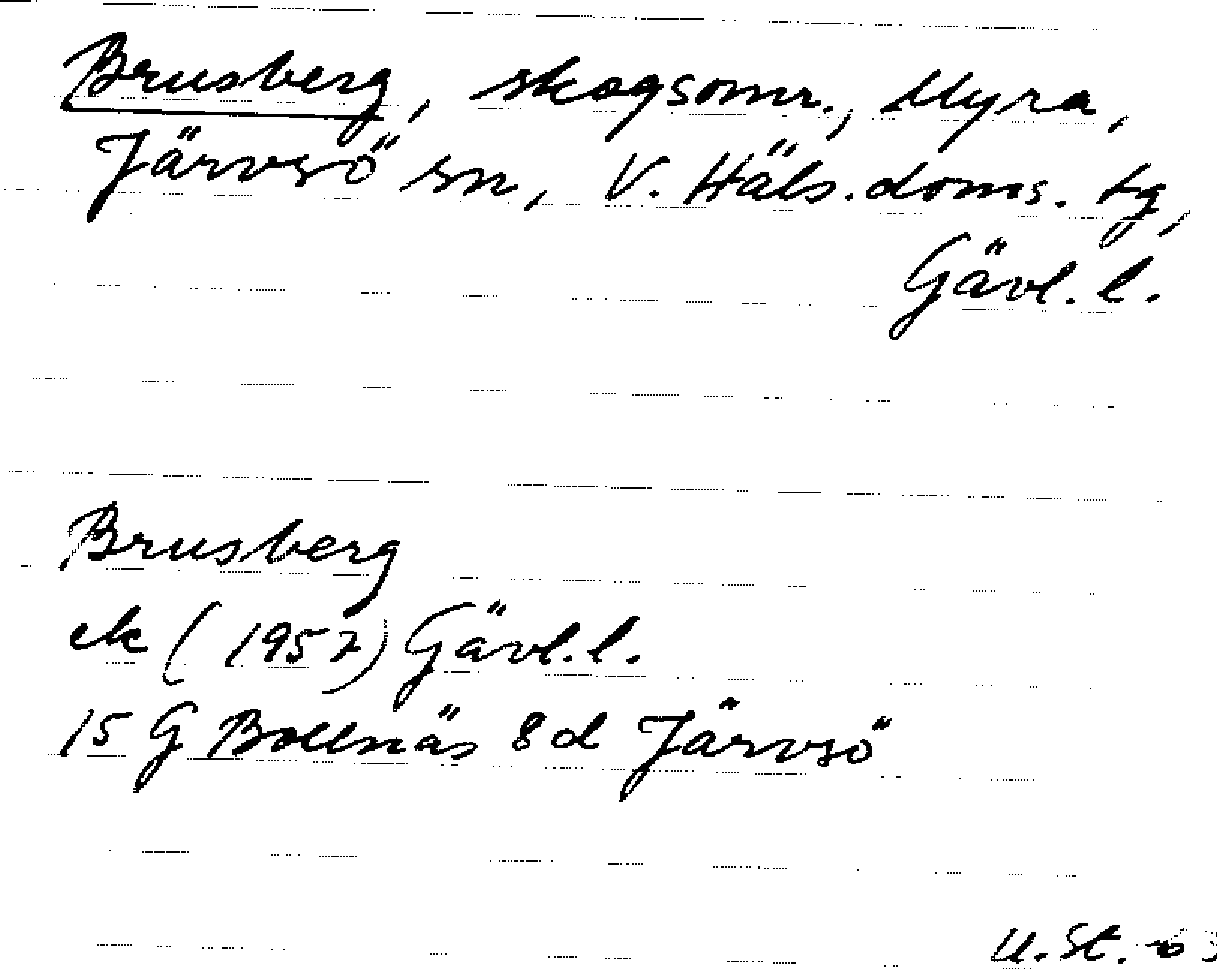 Brusberg, skogsomr., Myra,
Järvsö sn, V. Häls. doms. tg,
Gävl. l.
Brusberg
ek (1957) Gävl. l.
15 G Bollnäs 8d Järvsö
U. St.